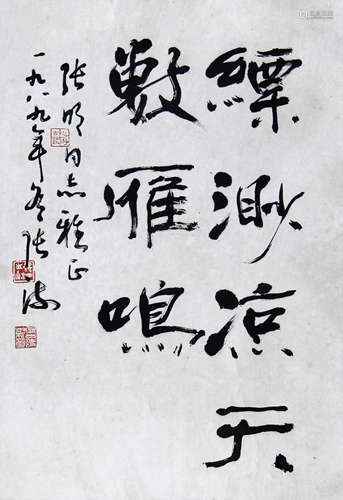 縹渺凉天
數雁鳴
張明同志雅正
一九八九年冬張海